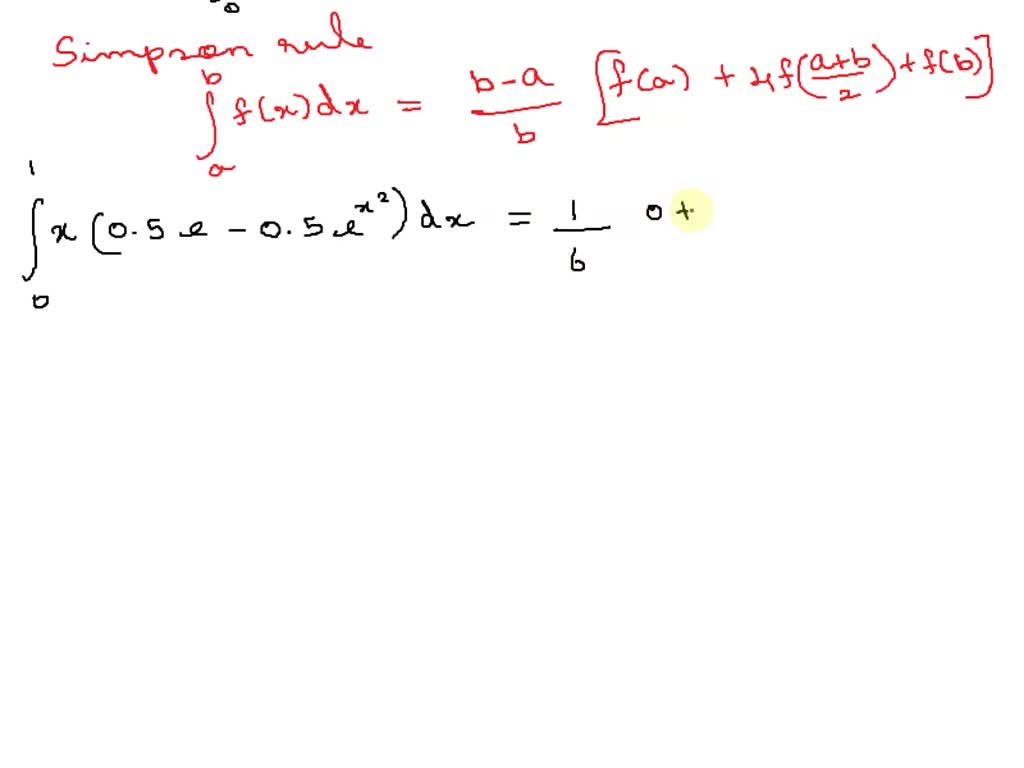 0
Simpson rule
∫_a^b f(x)dx = (b-a)/6 [f(a) + 4f((a+b)/2) + f(b)]
∫_0^1 x(0.5e - 0.5e^{x^2})dx = 1/6 0 +